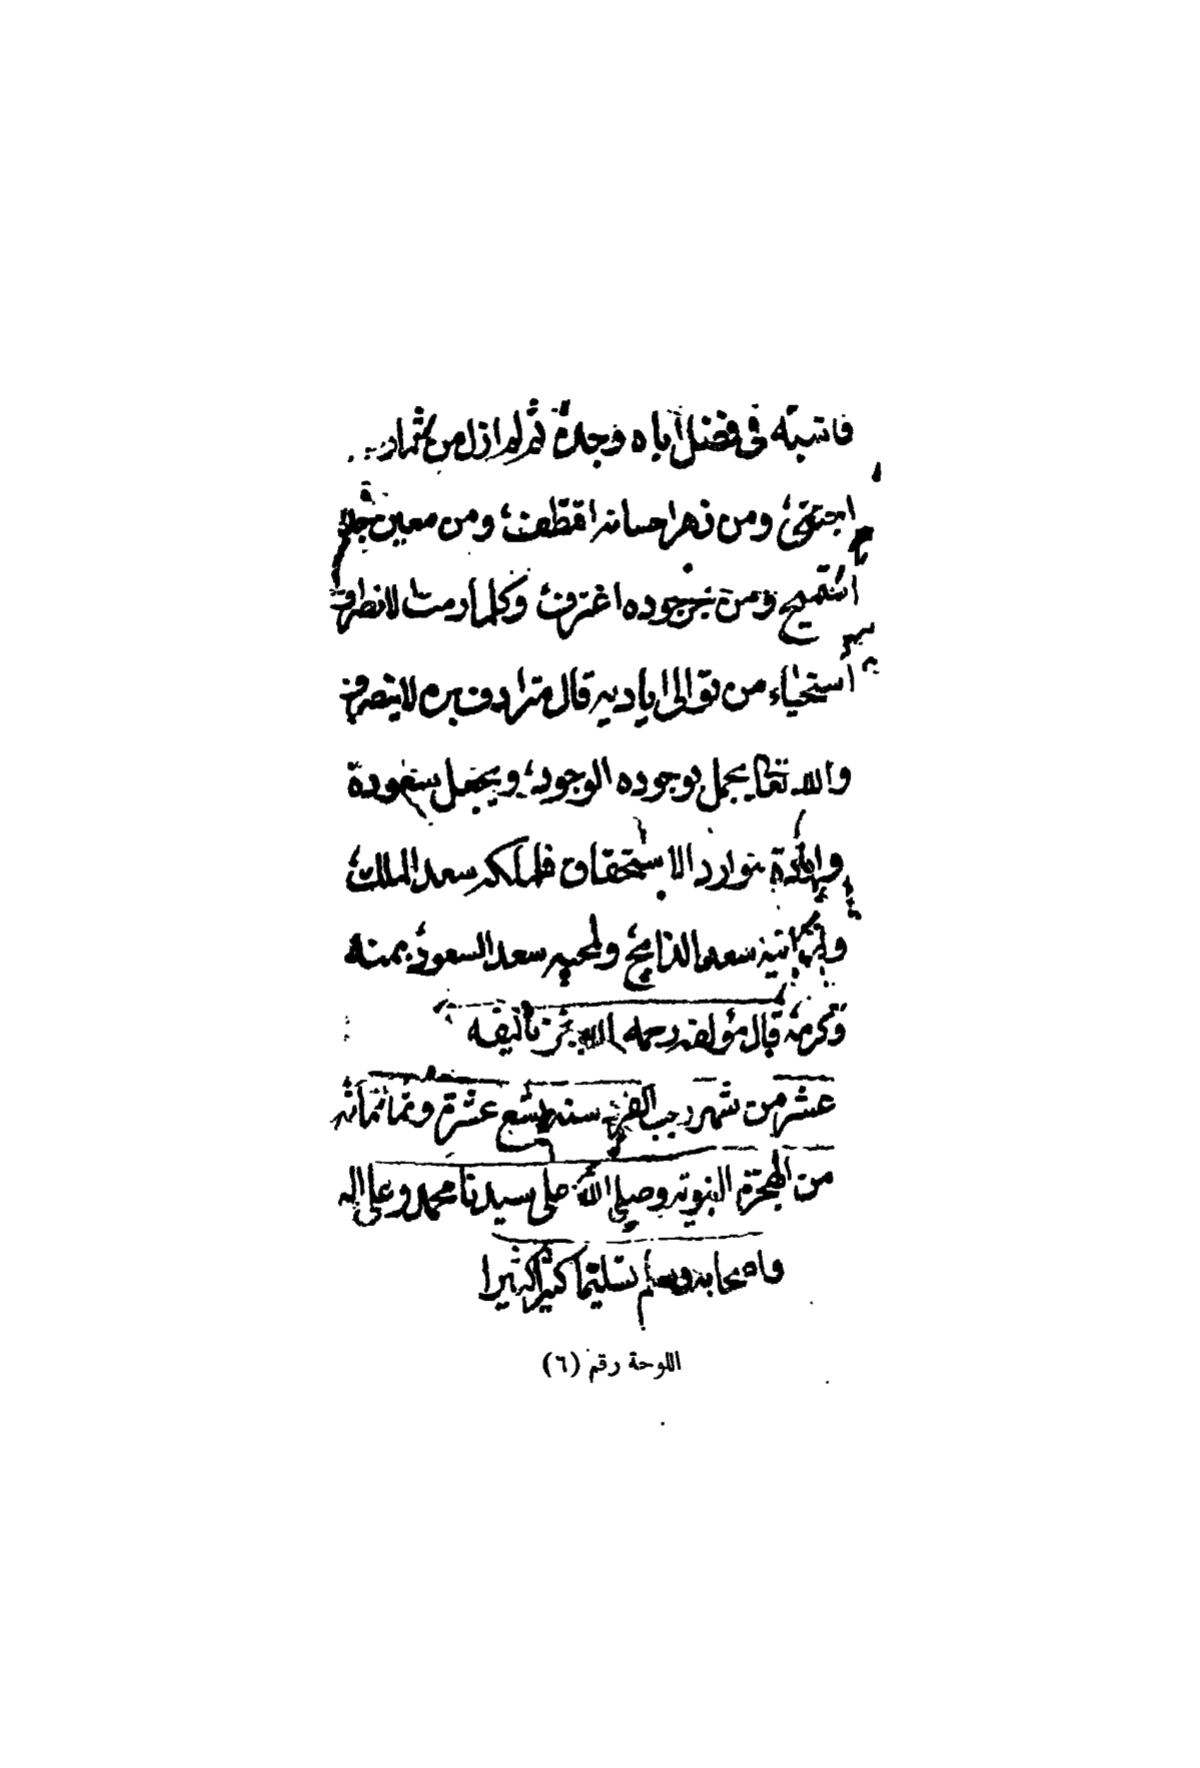 فاشبه في فضل أباه وجده ثم لم ازل من ثمار
اجتني ومن زهر احسانه اقتطف ومن معين
أستميح ومن بحر جوده اغترف وكلما رمت لانصرف
أستحياء من توالى اياديه قال مترادف بره لا ينصرف
والله تعالى يجمل بوجوده الوجود ويجعل سعوده
بتوارد الاستحقاق فلملكه سعد الملك
سعد الذابح ولمحبه سعد السعود بمنه
وكرمه قال مؤلفه رحمه الله نجز تأليفه
عشر من شهر رجب الفرد سنه تسع عشرة وثمانمائه
من الهجرة النبويه وصلى الله على سيدنا محمد وعلى اله
واصحابه وسلم تسليما كثيرا كثيرا
اللوحة رقم (٦)